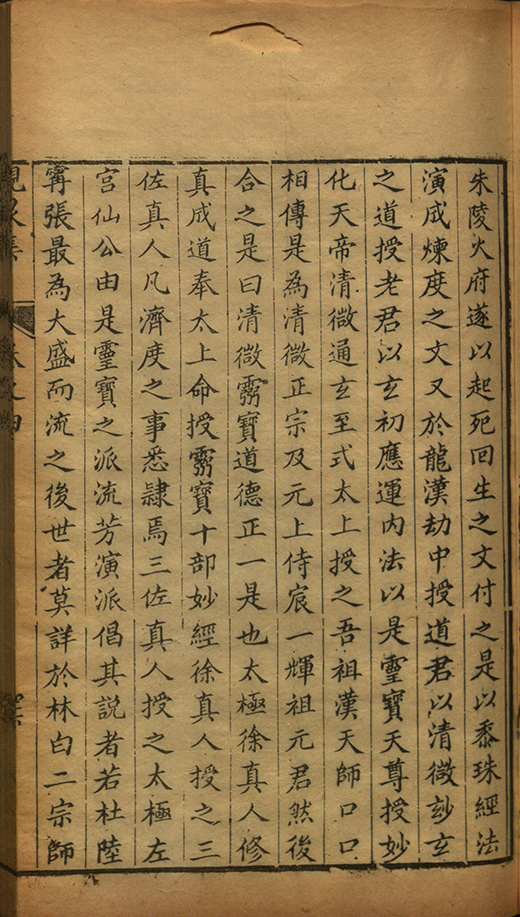 朱陵火府遂以起死回生之文付之是以黍珠經法
演成煉度之文又於龍漢劫中授道君以清微玅玄
之道授老君以玄初應運內法以是靈寶天尊授妙
化天帝清微通玄至式太上授之吾祖漢天師口口
相傳是為清微正宗及元上侍宸一輝祖元君然後
合之是曰清微靈寶道德正一是也太極徐真人修
真成道奉太上命授靈寶十部妙經徐真人授之三
佐真人凡濟度之事悉隸焉三佐真人授之太極左
宮仙公由是靈寶之派流芳演派倡其説者若杜陸
甯張最為大盛而流之後世者莫詳於林白二宗師
卷之四